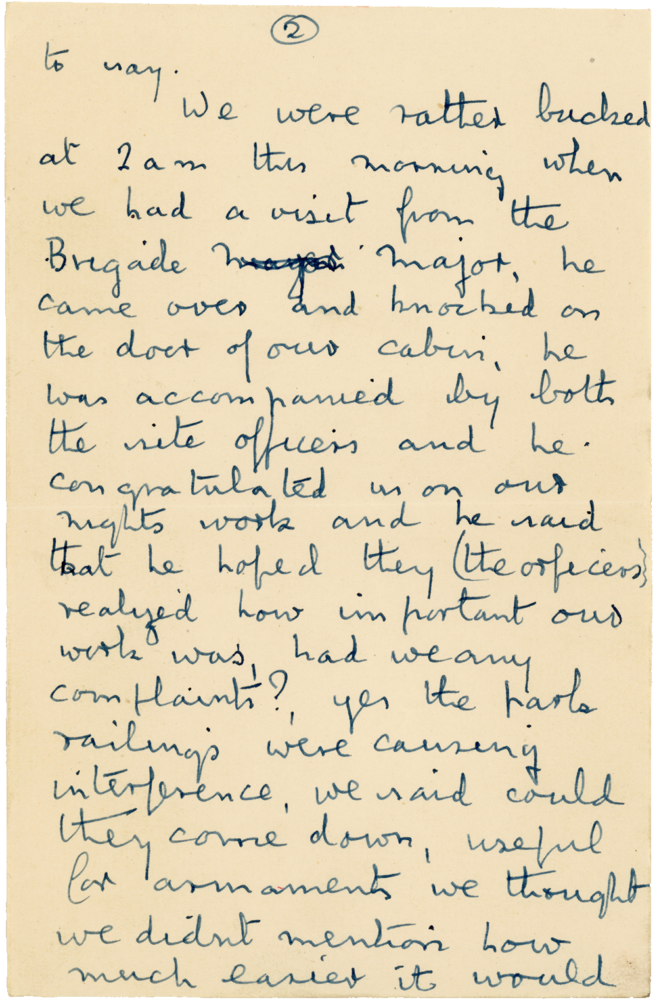 2
to say.
We were rather bucked
at 2am this morning when
we had a visit from the
Brigade major, he
came over and knocked on
the door of our cabin, he
was accompanied by both
the site officers and he.
congratulated us on our
nights work and he said
that he hoped they (the officers)
realized how important our
work was, had we any
complaints?, yes the park
railings were causing
interference, we said could
they come down, useful
for armaments we thought
we didnt mention how
much easier it would